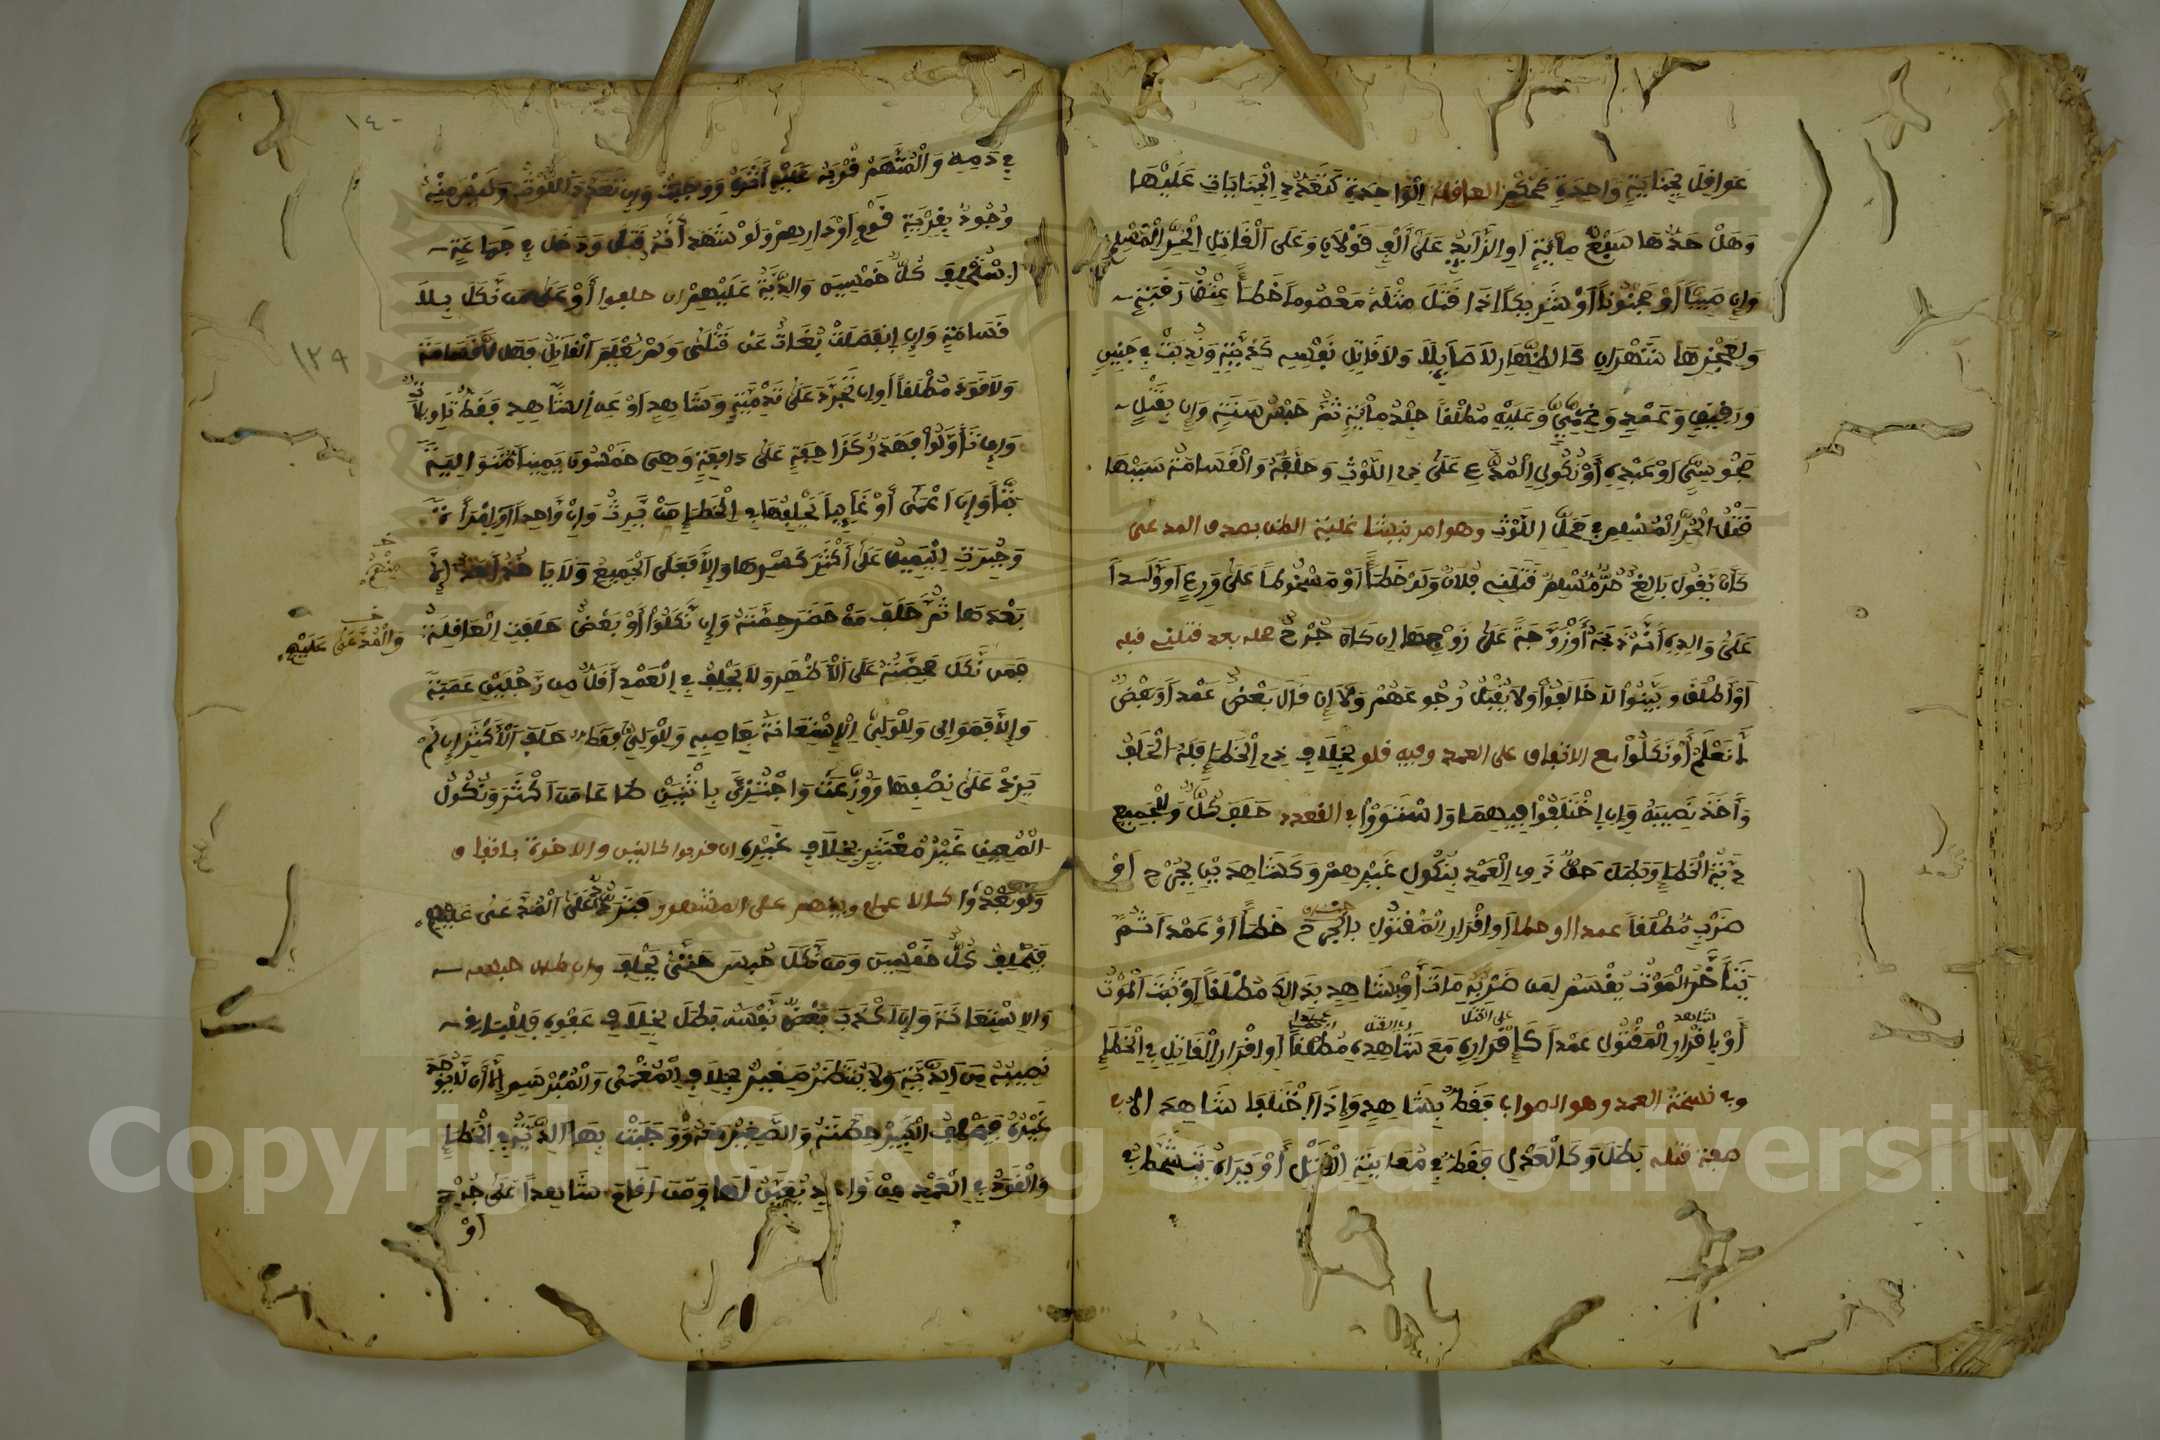 عَوَاقِلَ بِجِنَايَةٍ وَاحِدَةٍ كَحُكْمِ العاقلة الْوَاحِدَةِ كَتَعَدُّدِ الْجِنَايَاتِ عَلَيْهَا
وَهَلْ حَدُّهَا سَبْعُ مِائَةٍ أَوِ الزَّائِدُ عَلَى أَلْفٍ قَوْلَانِ وَعَلَى الْقَاتِلِ الْحُرِّ الْمُسْلِمِ
وَإِن صَبِيّاً أَوْ مَجْنُوناً أَوْ شَرِيكاً إِذَا قَتَلَ مِثْلَهُ مَعْصُوماً خَطَأً عِتْقُ رَقَبَةٍ
وَلِعَجْزِهَا شَهْرَانِ كَالظِّهَارِ لَا صَائِلاً وَلَا قَاتِلَ نَفْسِهِ كَدِيَتِهِ وَنُدِبَتْ فِي جَنِينٍ
وَرَقِيقٍ وَعَمْدٍ وَذِمِّيٍّ وَعَلَيْهِ مُطْلَقاً جَلْدُ مِائَةٍ ثُمَّ حَبْسُ سَنَةٍ وَإِن بِقَتْلِ
مَجُوسِيٍّ أَوْ عَبْدِهِ أَوْ نُكُولِ الْمُدَّعِي عَلَى ذِي اللَّوْثِ وَحَلِفِهِ وَالْقَسَامَةُ سَبَبُهَا
قَتْلُ الْحُرِّ الْمُسْلِمِ فِي مَحَلِّ اللَّوْثِ وهو امر ينشا غلبة الظن بصدق المدعى
كَأَن يَقُولَ بَالِغٌ حُرٌّ مُسْلِمٌ قَتَلَنِي فُلَانٌ وَلَوْ خَطَأً أَوْ مَسْخُوطاً عَلَى وَرِعٍ أَوْ وَلَداً
عَلَى وَالِدِهِ أَنَّهُ ذَبَحَهُ أَوْ زَوْجَةً عَلَى زَوْجِهَا إِن كَانَ جُرْحٌ
أَوْ أَطْلَقَ وَبَيَّنُوا لَا خَالَفُوا وَلَا يُقْبَلُ رُجُوعُهُمْ وَلَا إِن قَالَ بَعْضٌ عَمْداً وَبَعْضٌ
لَا نَعْلَمُ أَوْ نَكَلُوا مع الاتفاق على العمد بِخِلَافِ ذِي الْخَطَإِ فَلَهُ الْحَلِفُ
وَأَخْذُ نَصِيبِهِ وَإِنِ اخْتَلَفُوا فِيهِمَا وَاسْتَوَوْا في القعدد حَلَفَ كُلٌّ وَلِلْجَمِيعِ
دِيَةُ الْخَطَإِ وَبَطَلَ حَقُّ ذَوِي الْعَمْدِ بِنُكُولِ غَيْرِهِمْ وَكَشَاهِدَيْنِ بِجُرْحٍ أَوْ
ضَرْبٍ مُطْلَقاً عمدا او خطا أَوِ اقْرَارِ الْمَقْتُولِ بِالْجُرْحِ خَطَأً أَوْ عَمْداً ثُمَّ
يَتَأَخَّرُ الْمَوْتُ يُقْسِمُ لَمِن ضَرْبِهِ مَاتَ أَوْ بِشَاهِدٍ بِذَالِكَ مُطْلَقاً إِن ثَبَتَ الْمَوْتُ
أَوْ بِإِقْرَارِ الْمَقْتُولِ عَمْداً كَإِقْرَارِهِ مَعَ شَاهِدِهِ مُطْلَقاً أَوِ اقْرَارِ الْقَاتِلِ فِي الْخَطَإِ
وفي نسخة العمد وهو الصواب فَقَطْ بِشَاهِدٍ وَإِذَا اخْتَلَفَ شَاهِدَاهُ في
صفة قتله بَطَلَ وَكَالْعَدْلِ فَقَطْ فِي مُعَايَنَةِ الْقَتْلِ أَوْ يَرَاهُ يَتَشَحَّطُ فِي
١٤٠
فِي دَمِهِ وَالْمُتَّهَمُ قُرْبَهُ عَلَيْهِ أَثَرُهُ وَوَجَبَتْ وَإِن تَعَدَّدَ اللَّوْثُ وَلَيْسَ مِنْهُ
وُجُودُهُ بِقَرْيَةِ قَوْمٍ أَوْ دَارِهِمْ وَلَوْ شَهِدَ أَنَّهُ قَتَلَ وَدَخَلَ فِي جَمَاعَةٍ
اسْتُحْلِفَ كُلٌّ خَمْسِينَ وَالدِّيَةُ عَلَيْهِمْ ان حلفوا أَوْ عَلَى مَن نَكَلَ بِلَا
قَسَامَةٍ وَإِنِ انْفَصَلَتْ بُغَاةٌ عَن قَتْلَى وَلَمْ يُعْلَمِ الْقَاتِلُ فَهَلْ لَا قَسَامَةَ
١٣٩
وَلَا قَوَدَ مُطْلَقاً أَوِ ان تَجَرَّدَ عَلَى تَدْمِيَةٍ وَشَاهِدٍ أَوْ عَنِ الشَّاهِدِ فَقَطْ تَاوِيلَاتٌ
وَإِن تَأَوَّلُوا فَهَدَرٌ كَزَاحِفَةٍ عَلَى دَافِعَةٍ وَهِيَ خَمْسُونَ يَمِيناً مُتَوَالِيَةً
بَتّاً وَإِنَ اعْمَى أَوْ غَائِباً يَحْلِفُهَا فِي الْخَطَإِ مَنْ يَرِثُ وَإِنْ وَاحِداً أَوِ امْرَأَةً
وَجُبِرَتِ الْيَمِينُ عَلَى أَكْثَرِ كَسْرِهَا وَإِلَّا فَعَلَى الْجَمِيعِ وَلَا يَاخُذُ أَحَدٌ إِلَّا
بَعْدَهَا ثُمَّ حَلَفَ مَنْ حَضَرَ حِصَّتَهُ وَإِن نَكَلُوا أَوْ بَعْضٌ حَلَفَتِ الْعَاقِلَةُ
وَالْمُدَّعَى عَلَيْهِ
فَمَن نَكَلَ فَحِصَّتُهُ عَلَى الْأَظْهَرِ وَلَا يَحْلِفُ فِي الْعَمْدِ أَقَلُّ مِن رَجُلَيْنِ عَصَبَةً
وَإِلَّا فَمَوَالِي وَلِلْوَلِيِّ الْاِسْتِعَانَةُ بِعَاصِبِهِ وَلِلْوَلِيِّ فَقَطْ حَلِفُ الْأَكْثَرِ إِن لَمْ
يَزِدْ عَلَى نِصْفِهَا وَوُزِّعَتْ وَاجْتُزِئَ بِاثْنَيْنِ طَاعَا مِنَ اكْثَرَ وَنُكُولُ
الْمُعِينِ غَيْرُ مُعْتَبَرٍ بِخِلَافِ غَيْرِهِ ان قربوا كالبنين والاخوة باتفاق
وَلَوْ بَعُدُوا كالاعمام على المشهور فَتُرَدُّ عَلَى الْمُدَّعَى عَلَيْهِمْ
فَيَحْلِفُ كُلٌّ خَمْسِينَ وَمَن نَكَلَ حُبِسَ حَتَّى يَحْلِفَ وان طال حبسه
وَالِاسْتِعَانَةَ وَإِنَ اكْذَبَ بَعْضٌ نَفْسَهُ بَطَلَ بِخِلَافِ عَفْوِهِ فَلِلْبَاقِي
نَصِيبُهُ مِنَ الدِّيَةِ وَلَا يُنْتَظَرُ صَغِيرٌ بِخِلَافِ الْمُغْمَى وَالْمُبَرْسَمِ إِلَّا أَن لَا يُوجَدَ
غَيْرُهُ فَيَحْلِفُ الْكَبِيرُ حِصَّتَهُ وَالصَّغِيرُ مَعَهُ وَوَجَبَتْ بِهَا الدِّيَةُ فِي الْخَطَإِ
وَالْقَوَدُ فِي الْعَمْدِ مِنْ وَاحِدٍ يُعَيَّنُ لَهَا وَمَنَ اقَامَ شَاهِداً عَلَى جُرْحٍ
أَوْ